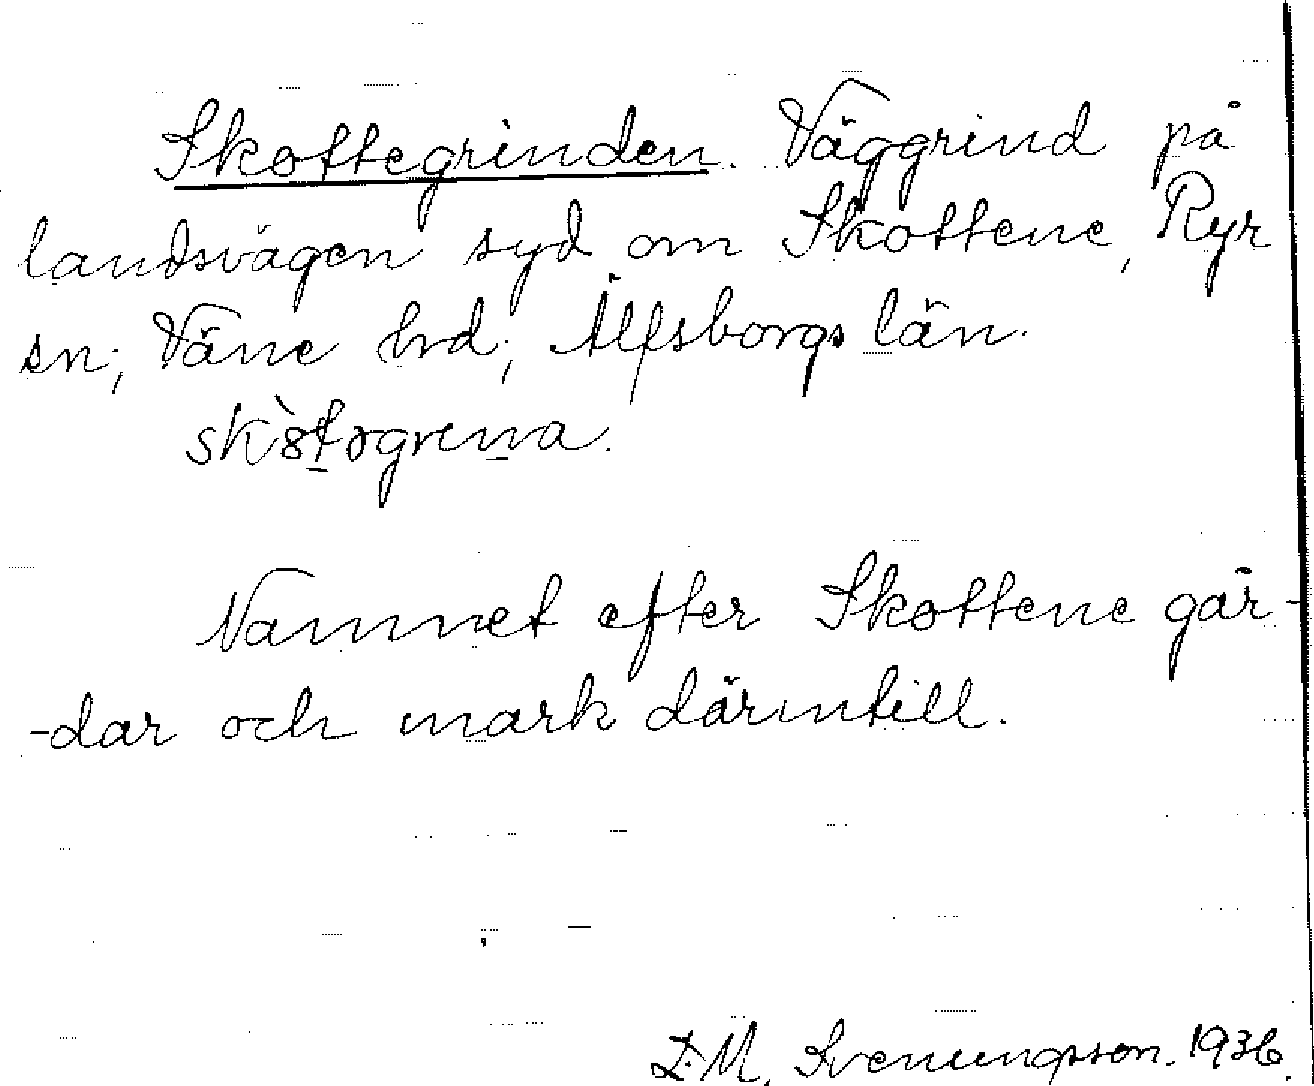 Skottegrinden. Väggrind på
landsvägen syd om Skottene, Ryr
sn; Väne hrd; Älfsborgs län.
Namnet efter Skottene går-
-dar och mark därintill.
D. M. Svenungsson. 1936.